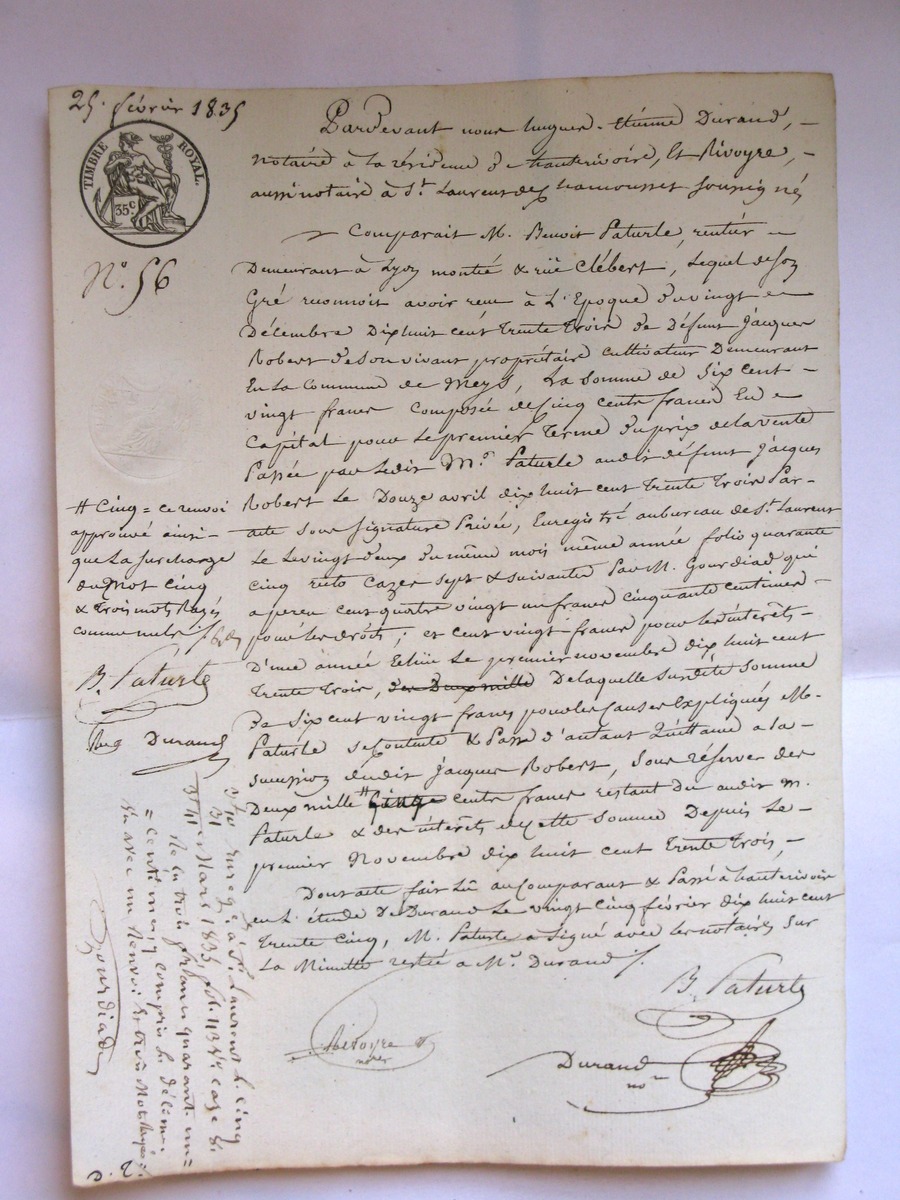 25. février 1835
TIMBRE ROYAL.
35 c.
N.° 56
Pardevant nous hugues-Etienne Durand, –
notaire à la résidence de hauterivoire, Et Rivoyre, –
aussi notaire à S.t Laurent de Chamousset soussignés
Comparait M. Benoit Paturle, rentier –
Demeurant à Lyon montée & rüe Clébert, Lequel de son
Gré reconnoit avoir reçu à L'Epoque du vingt –
Décembre Dix huit cent trente trois de Défunt Jacques
Robert de son vivant propriétaire cultivateur Demeurant
En La Commune de Meys, La somme de six cent –
vingt francs Composée de Cinq cents francs En –
Capital pour Le premier terme du prix de la vente
Passée par Ledit M.r Paturle audit défunt Jacques
Robert Le Douze avril dix huit cent trente trois Par –
acte sous signature Privée, Enregistré au bureau de S.t Laurent
Le vingt deux du même mois même année folio quarante
cinq recto cazes sept & suivantes Par M. Gourdiad qui
a perçu cent quatre vingt un francs cinquante centimes –
pour les droits; et cent vingt francs pour les intérêts –
D'une année Echüe Le premier novembre dix huit cent
trente trois, de Deux mille De laquelle susdite somme
De six cent vingt francs pour les causes Expliquées M.
Paturle se Contente & Passe d'autant Quittance a la
succession dudit Jacques Robert, sous réserve des
Deux mille # cinq cents francs restant du audit M.
Paturle & des intérêts de cette somme Depuis Le –
premier Novembre dix huit cent trente trois, –
Dont acte fait Lû au Comparant & Passé à hauterivoire
en L'étude De Durand Le vingt cinq février dix huit cent
trente Cinq, M. Paturle a signé avec les notaires sur
La Minutte restée a M.e Durand
# Cinq = ce renvoi
approuvé ainsi –
que La surcharge
du Mot Cinq
& trois mots Rayés
comme nuls
B. Paturle
Durand
Enregé à S.t Laurent le cinq
Mars 1835, fol. 113 V.° case 8.
=
centimes y compris le décime.
avec un Renvoi et trois Mots Rayés
Gourdiad
B. Paturle
Rivoyre
no.re
Durand
no.re